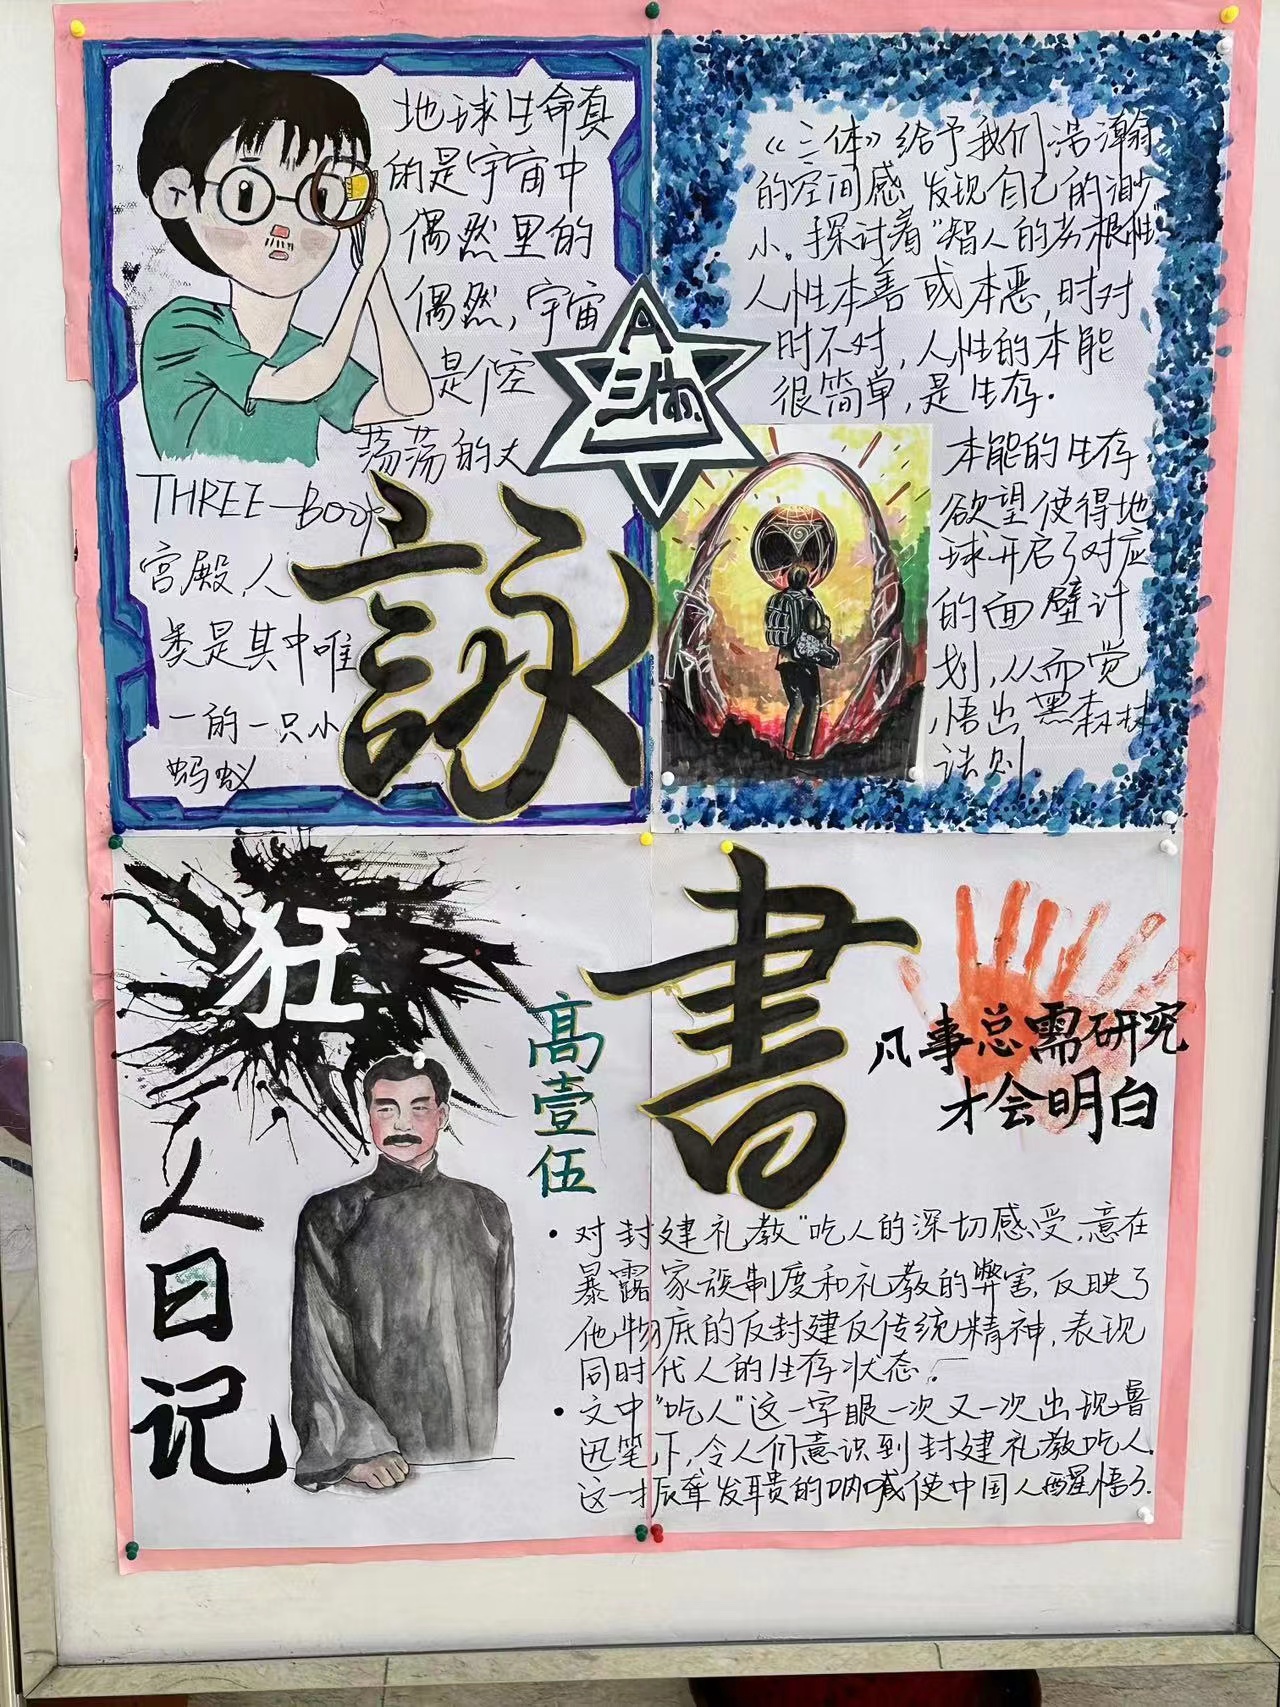 地球生命真
的是宇宙中
偶然里的
偶然,宇宙
是个空
荡荡的大
THREE-Body
宫殿,人
类是其中唯
一的一只小
蚂蚁
三体
《三体》给予我们浩瀚
的空间感 发现自己的渺
小。探讨着“智人的劣根性
人性本善或本恶,时对
时不对,人性的本能
很简单,是生存.
本能的生存
欲望使得地
球开启了对应
的面壁计
划,从而觉
悟出黑森林
法则.
詠
書
狂
人
日
记
高
壹
伍
凡事总需研究
才会明白
• 对封建礼教“吃人的深切感受,意在
暴露家族制度和礼教的弊害,反映了
他彻底的反封建反传统精神,表现
同时代人的生存状态。
• 文中“吃人”这一字眼一次又一次出现鲁
迅笔下,令人们意识到封建礼教吃人.
这一振聋发聩的呐喊使中国人醒悟了.